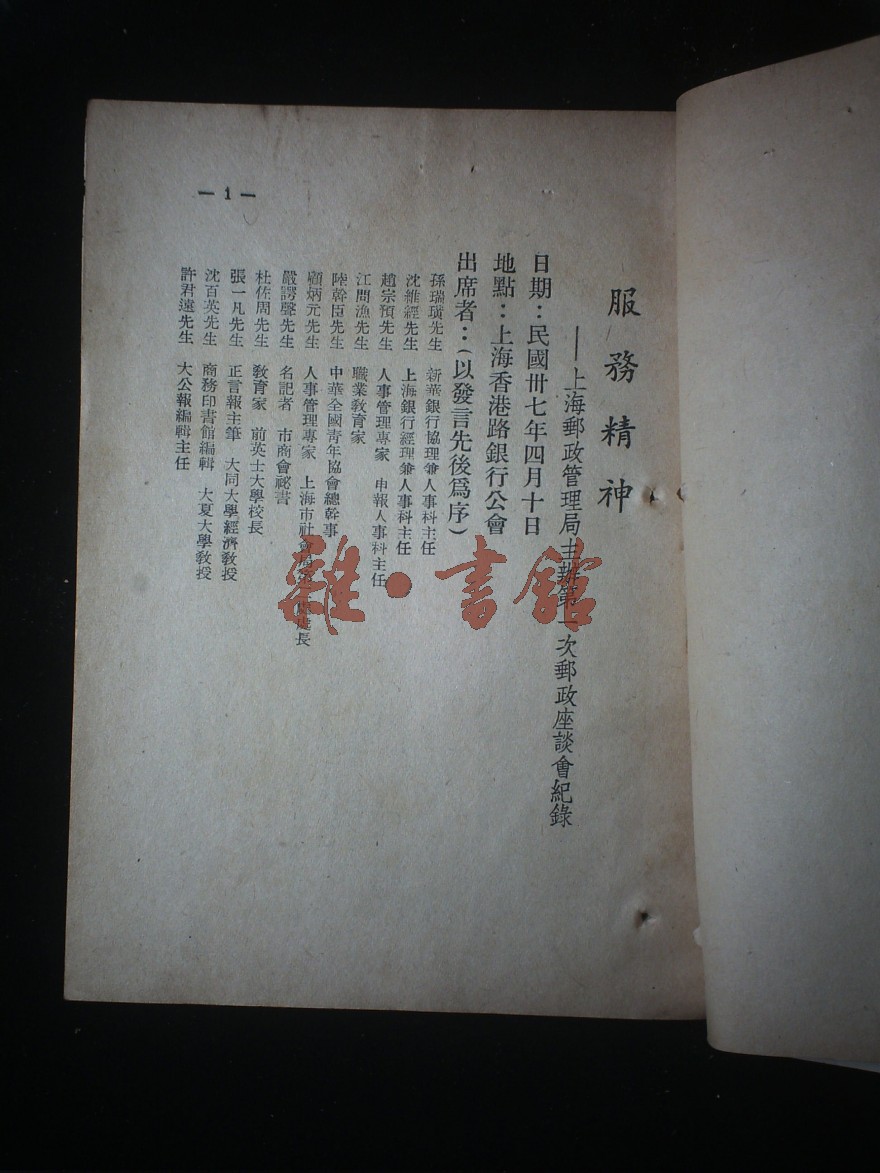 服務精神
——上海郵政管理局主辦第一次郵政座談會紀錄
日期：民國卅七年四月十日
地點：上海香港路銀行公會
出席者：（以發言先後爲序）
孫瑞璜先生 新華銀行協理兼人事科主任
沈維經先生 上海銀行經理兼人事科主任
趙宗預先生 人事管理專家 申報人事科主任
江問漁先生 職業教育家
陸幹臣先生 中華全國青年協會總幹事
顧炳元先生 人事管理專家 上海市社會局 處長
嚴諤聲先生 名記者 市商會祕書
杜佐周先生 教育家 前英士大學校長
張一凡先生 正言報主筆 大同大學經濟教授
沈百英先生 商務印書館編輯 大夏大學教授
許君遠先生 大公報編輯主任
— 1 —
雜·書館